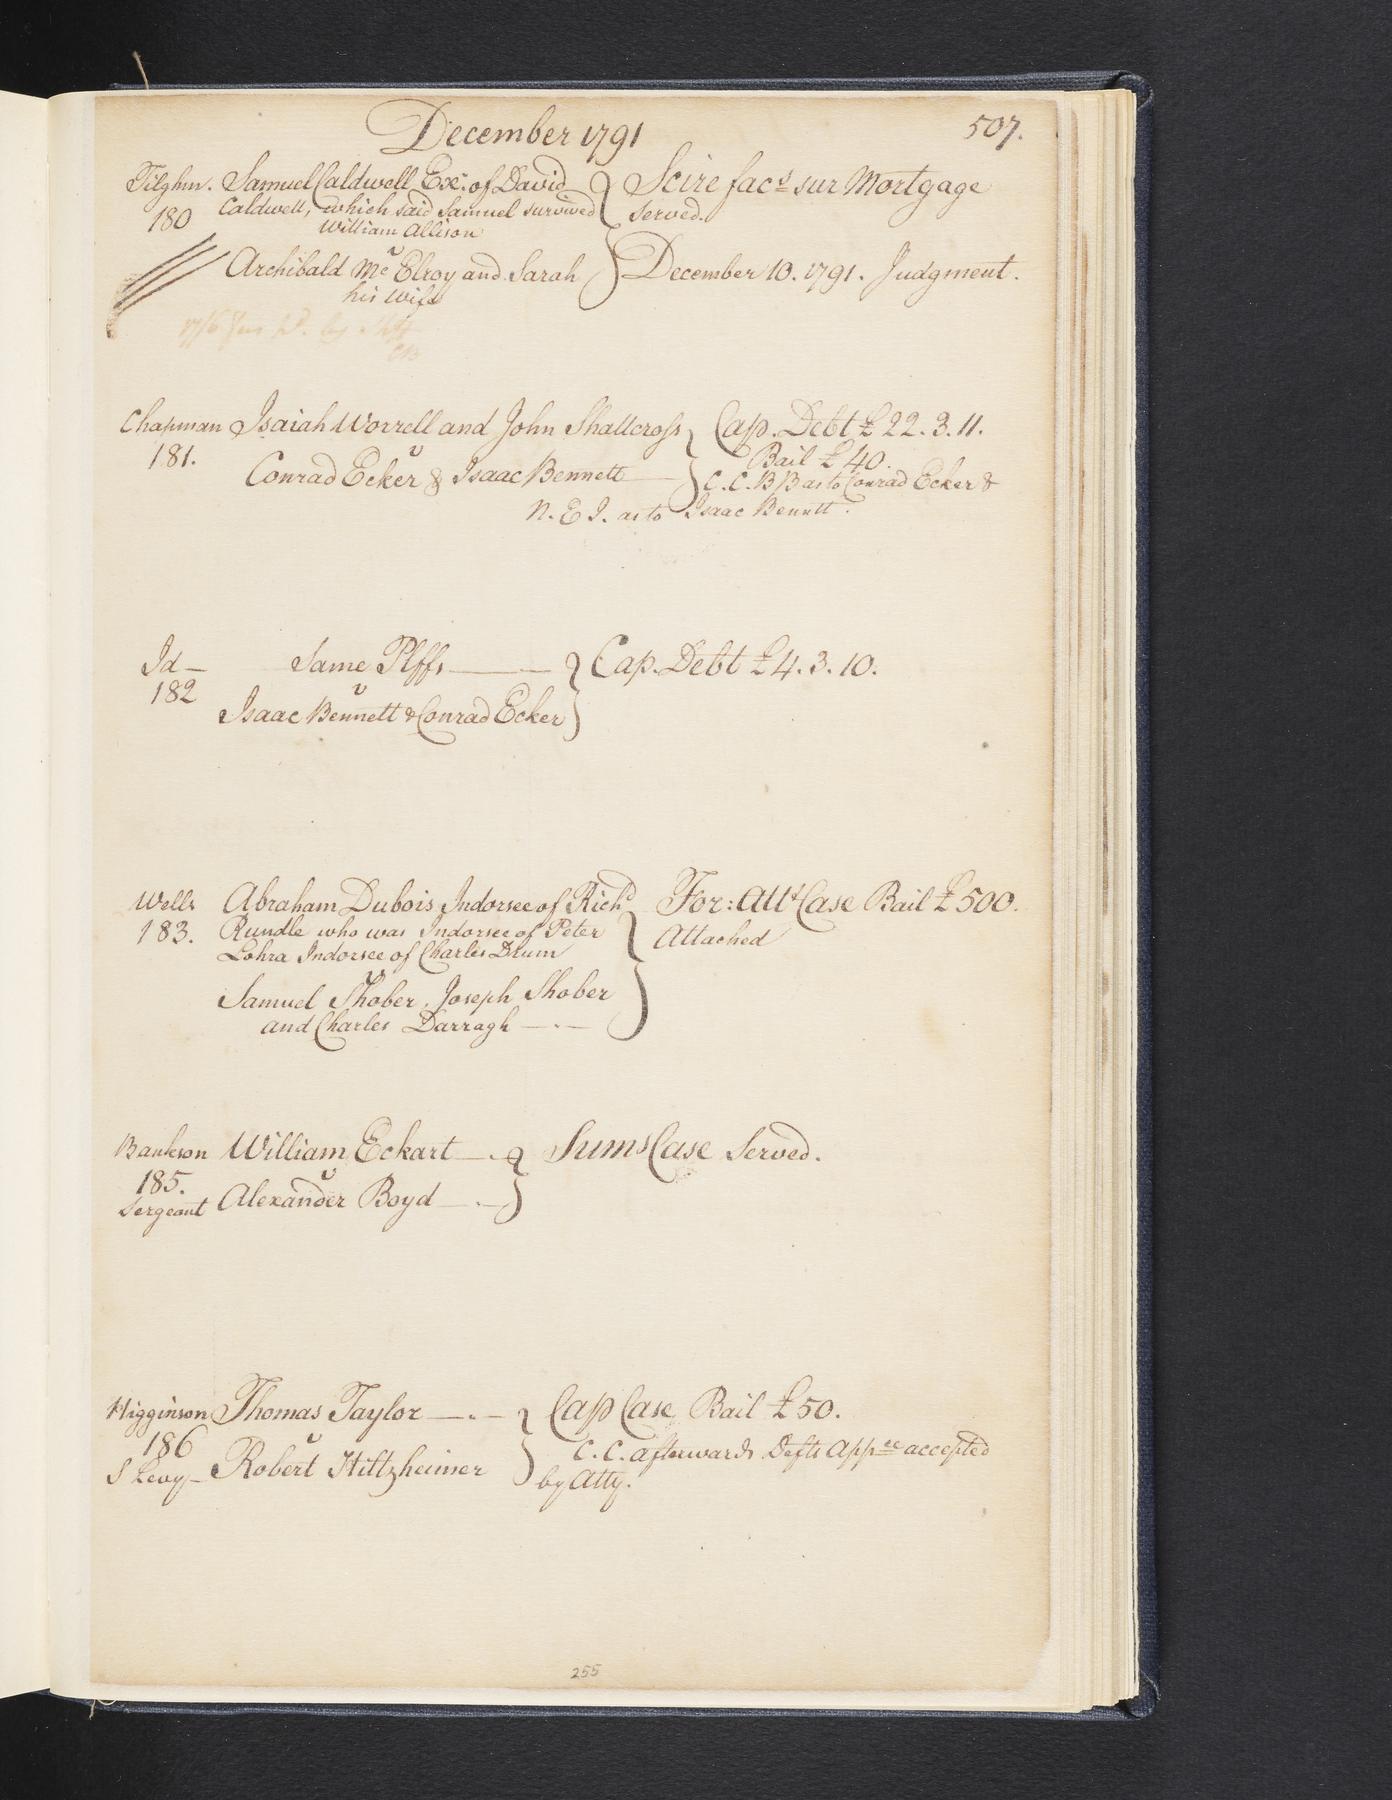 December 1791
507.
Tilghm. Samuel Caldwell Exr. of David
180 Caldwell, which said Samuel survived
William Allison
v
Archibald Mc Elroy and Sarah
his Wife
Scire facs sur Mortgage
served.
December 10. 1791. Judgment.
Chapman Isaiah Worrell and John Shallcross
181. v
Conrad Ecker & Isaac Bennett
Cap. Debt £22.3.11.
Bail £40.
C.C.BB as to Conrad Ecker &
N.E.I. as to Isaac Bennett.
Id— Same Plffs
182 v
Isaac Bennett & Conrad Ecker
Cap. Debt £4.3.10.
Wells Abraham Dubois Indorsee of Richd
183. Rundle who was Indorsee of Peter
Lohra Indorsee of Charles Drum
v
Samuel Shober, Joseph Shober
and Charles Darragh
For: Att Case Bail £500.
Attached
Bankson William Eckart
185. v
Sergeant Alexander Boyd
Sums Case Served.
Higginson Thomas Taylor
186 v
S Levy— Robert Hiltzheimer
Cap Case Bail £50.
C.C. afterwards Defts Appce accepted
by Atty.
255